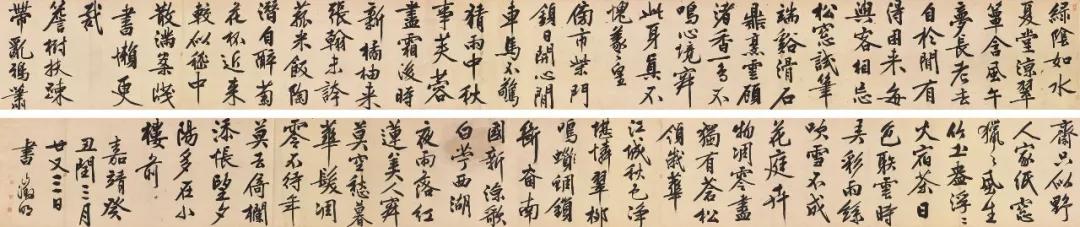 綠陰如水
夏堂涼翠
簟含風午
夢長老去
自於閒有
得困來每
與客相忘
松窗試筆
端谿滑石
鼎烹雲顧
渚香一鳥不
鳴心境寂
此身真不
愧羲皇
傍市柴門
鎖日開心閒
車馬不驚
猜雨中秋
事芙蓉
盡霜後時
新橘柚來
張翰未誇
菰米飯陶
潛自醉菊
花杯近來
較似嵇中
散滿案牋
書懶更
裁
簷樹扶疎
帶亂鴉蕭
齋只似野
人家紙窗
獵〻風生
竹土盎浮〻
火宿茶日
色雲時
弄彩雨絲
吹雪不成
花庭卉
物凋零盡
獨有蒼松
領歲華
江城秋色淨
堪憐翠柳
鳴蜩鎖
斷煙南
國新涼歌
白苧西湖
夜雨落紅
蓮美人寂
莫空愁暮
華髮凋
零不待年
莫去倚欄
添悵望夕
陽多在小
樓前
嘉靖癸
丑閏三月
廿又三日
書 徵明